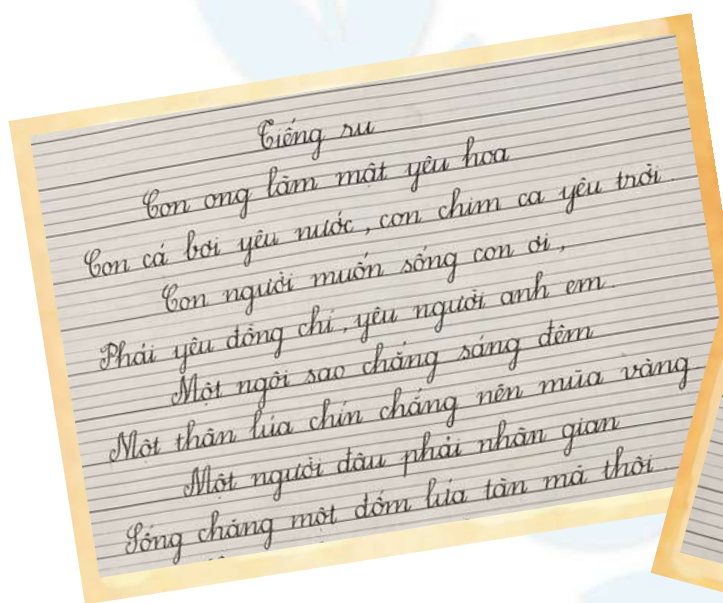 Tiếng ru
Con ong làm mật yêu hoa
Con cá bơi yêu nước, con chim ca yêu trời.
Con người muốn sống con ơi,
Phải yêu đồng chí, yêu người anh em.
Một ngôi sao chẳng sáng đêm
Một thân lúa chín chẳng nên mùa vàng
Một người đâu phải nhân gian
Sống chăng một đốm lửa tàn mà thôi.